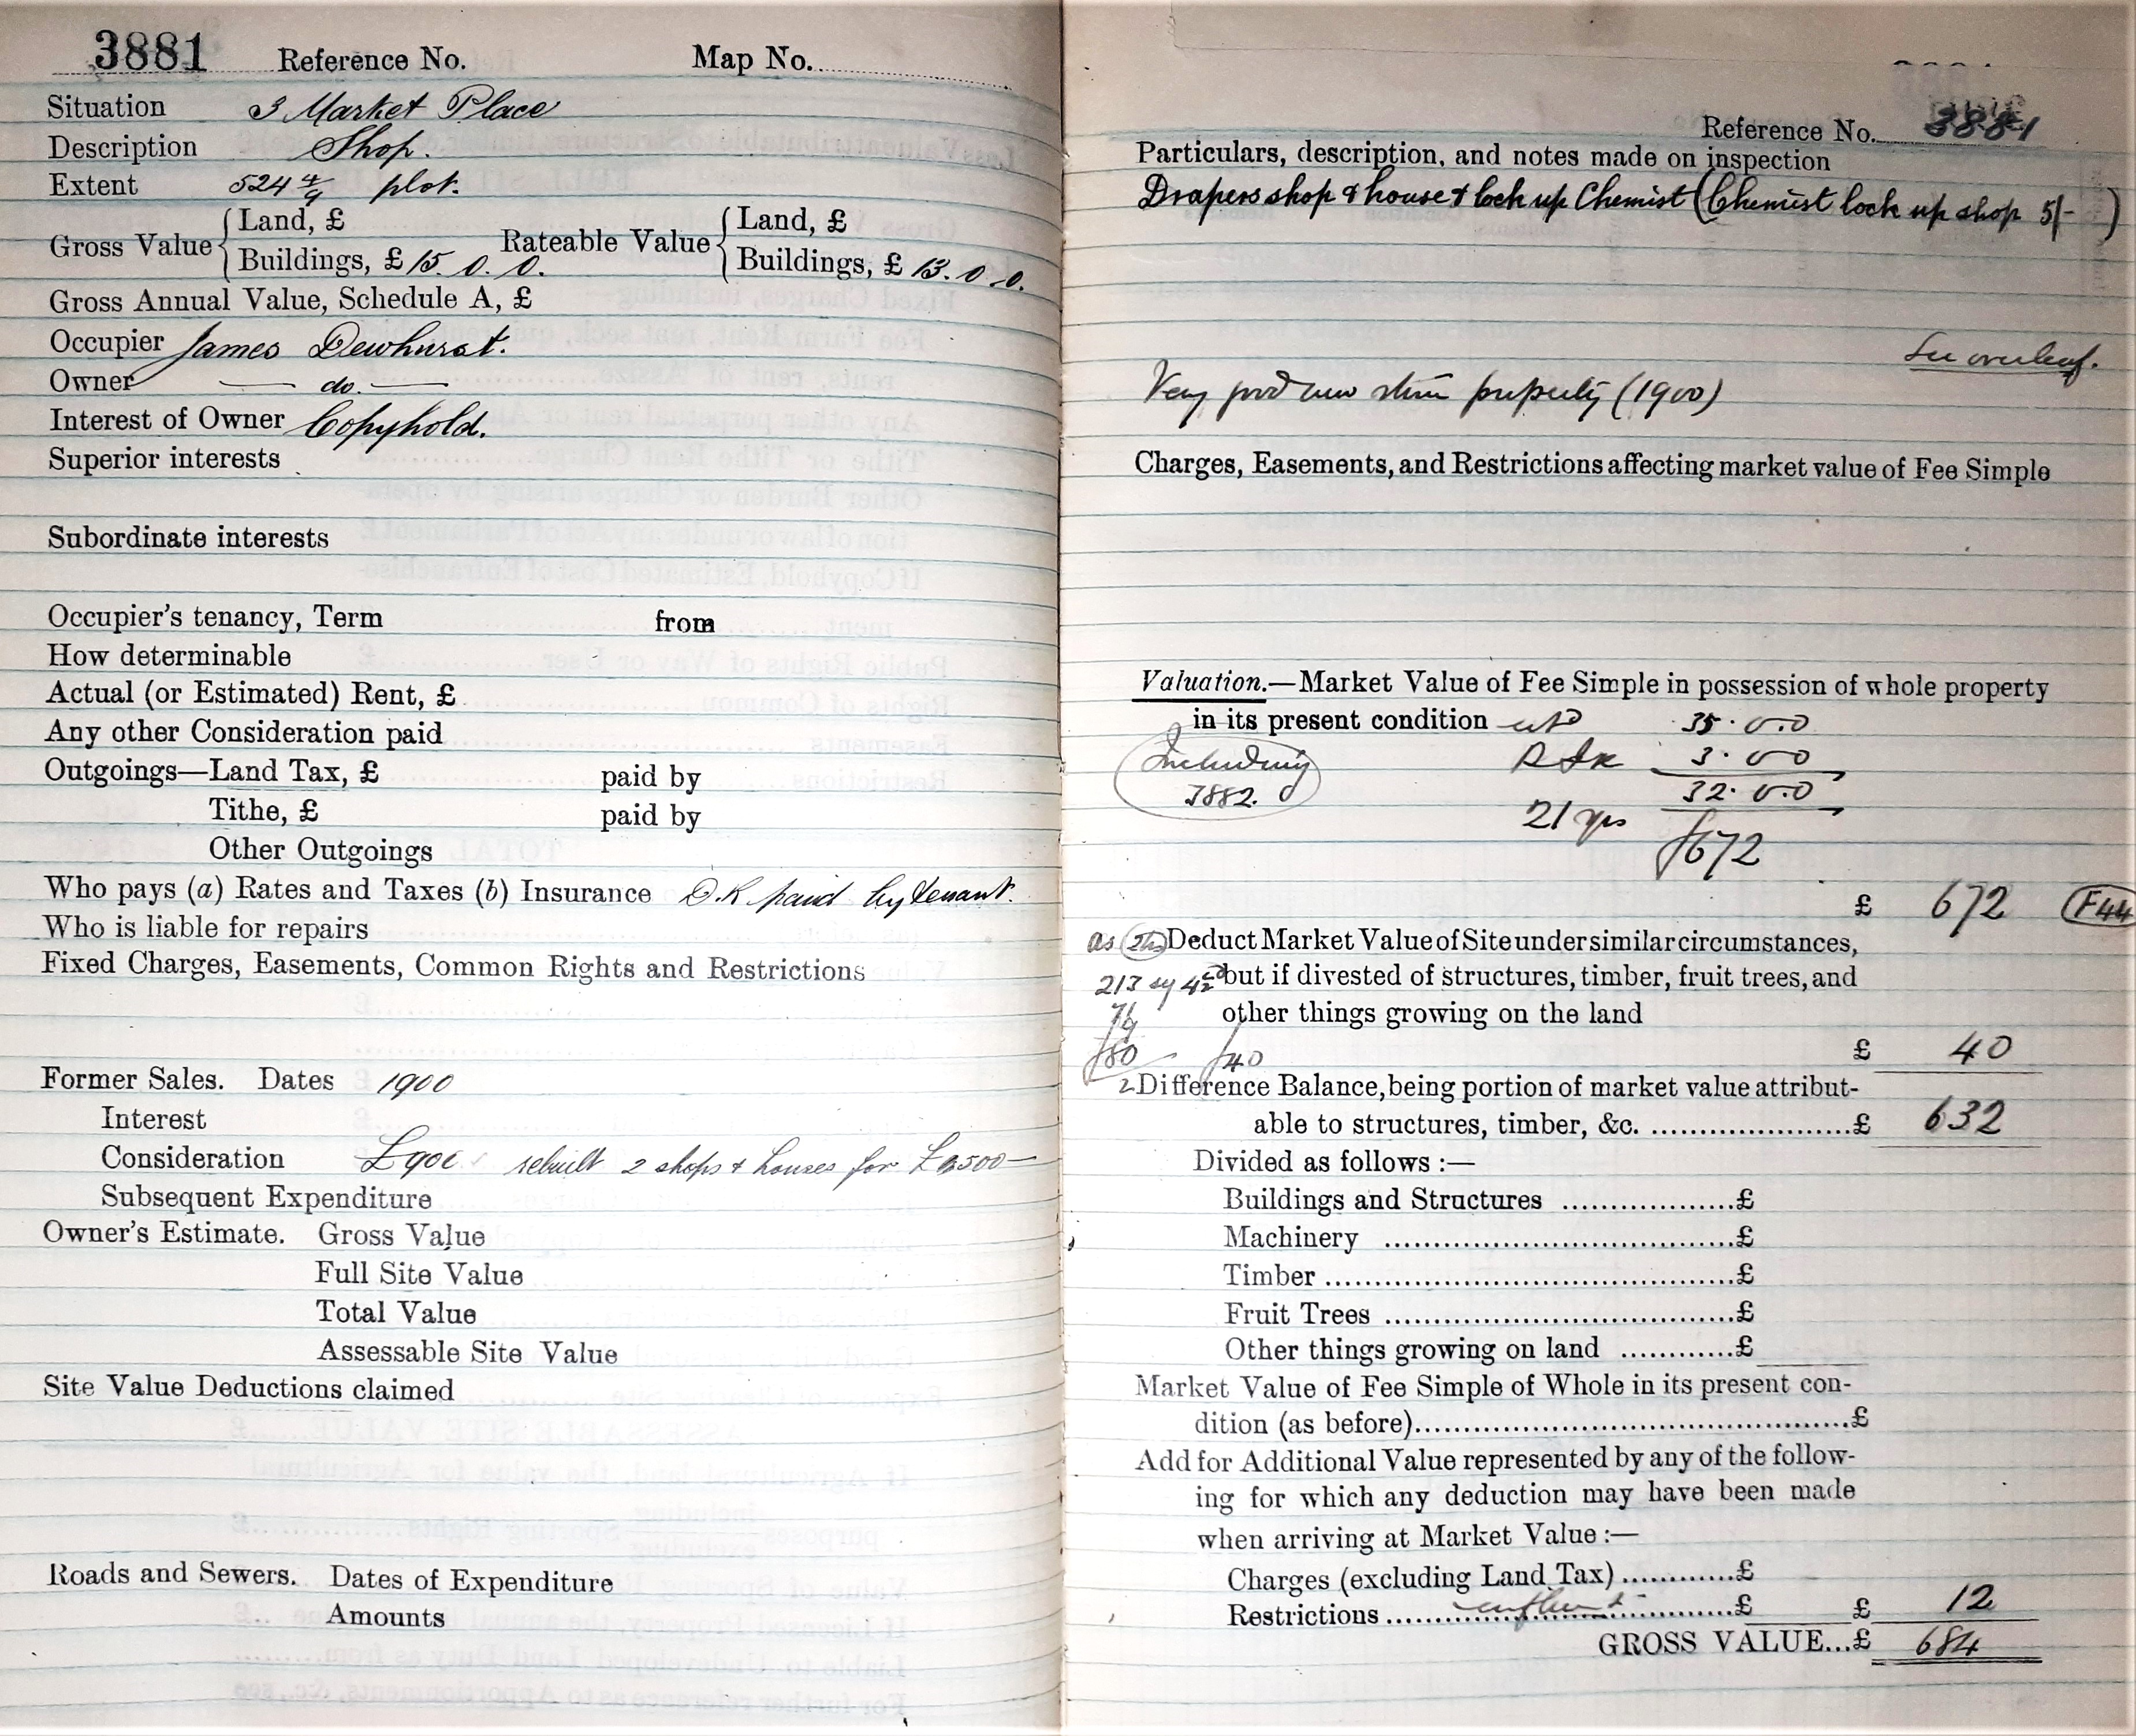 3881 Reference No. Map No.
Situation 3 Market Place
Description Shop.
Extent 524 4/9 plot.
Gross Value { Land, £ Rateable Value { Land, £
Buildings, £ 15. 0. 0. Buildings, £ 13. 0. 0.
Gross Annual Value, Schedule A, £
Occupier James Dewhurst.
Owner — do. —
Interest of Owner Copyhold.
Superior interests
Subordinate interests
Occupier's tenancy, Term from
How determinable
Actual (or Estimated) Rent, £
Any other Consideration paid
Outgoings—Land Tax, £ paid by
Tithe, £ paid by
Other Outgoings
Who pays (a) Rates and Taxes (b) Insurance paid by tenant.
Who is liable for repairs
Fixed Charges, Easements, Common Rights and Restrictions
Former Sales. Dates 1900
Interest
Consideration £900 rebuilt 2 shops & houses for
Subsequent Expenditure
Owner's Estimate. Gross Value
Full Site Value
Total Value
Assessable Site Value
Site Value Deductions claimed
Roads and Sewers. Dates of Expenditure
Amounts
Reference No. 3881
Particulars, description, and notes made on inspection
Drapers shop & house & lock up Chemist (Chemist lock up shop 5/- )
See overleaf.
Very good new stone property (1900)
Charges, Easements, and Restrictions affecting market value of Fee Simple
Valuation.—Market Value of Fee Simple in possession of whole property
in its present condition 35. 0. 0
Including 3. 0 0
3882. 32. 0. 0
21 yrs £672
£ 672 F44
as Deduct Market Value of Site under similar circumstances,
213 but if divested of structures, timber, fruit trees, and
other things growing on the land
£80 £40 £ 40
2 Difference Balance, being portion of market value attribut-
able to structures, timber, &c. ........£ 632
Divided as follows :—
Buildings and Structures ........£
Machinery ........£
Timber ........£
Fruit Trees ........£
Other things growing on land ........£
Market Value of Fee Simple of Whole in its present con-
dition (as before)........£
Add for Additional Value represented by any of the follow-
ing for which any deduction may have been made
when arriving at Market Value :—
Charges (excluding Land Tax) ........£
Restrictions ........£ £ 12
GROSS VALUE...£ 684